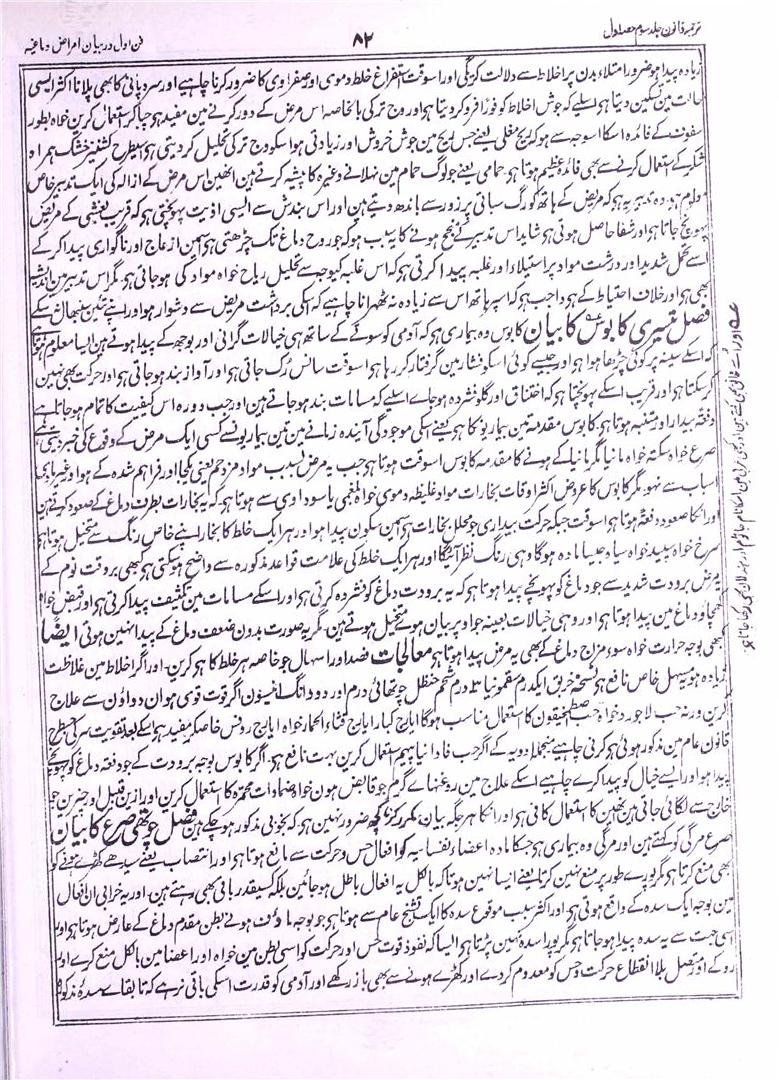 ترجمۂ قانون جلد سوم حصہ اول
۸۲
فن اول در بیان امراض دماغیہ
زیادہ پیدا ہو ضرور امتلاء بدن پر اخلاط سے دلالت کریگی اور اسوقت استفراغ خلط دموی اور صفراوی کا ضرور کرنا چاہیے اور سرد پانی کا بھی پلانا اکثر ایسی
حالت مین تسکین دیتا ہے اسلیے کہ جوش اخلاط کو فوراً فرو کر دیتا ہے اور وج ترکی بالخاصہ اس مرض کے دور کرنے مین مفید ہے چبا کر استعمال کرین خواہ بطور
سفوف کے فائدہ اسکا اسوجہ سے ہو کہ ریح مغلی یعنے جس ریح مین جوش خروش اور زیادتی ہو اسکو وج ترکی تحلیل کر دیتی ہے اسیطرح کشنیز خشک ہمراہ
شکر کے استعمال کرنے سے بھی فائدہ عظیم ہوتا ہے۔ حمامی یعنے جو لوگ حمام مین نہلانے وغیرہ کا پیشہ کرتے ہین انھین اس مرض کے ازالہ کی ایک تدبیر خاص
معلوم ہے وہ تدبیر یہ ہے کہ مریض کے ہاتھ کو رگ سباتی پر زور سے باندھ دیتے ہین اور اس بندش سے ایسی اذیت پہونچتی ہے کہ قریب غشی کے مریض
پہونچ جاتا ہے اور شفا حاصل ہوتی ہے شاید اس تدبیر کے نجح ہونے کا یہ سبب ہو کہ جو روح دماغ تک چڑھتی ہے اسمین ازعاج اور ناگواری پیدا کر کے
اسے تحمل شدید اور درشت مواد پر استیلاء اور غلبہ پیدا کرتی ہے کہ اس غلبہ کیوجہ سے تحلیل ریاح خواہ مواد کی ہو جاتی ہے۔ مگر اس تدبیر مین اندیشہ
بھی ہے اور خلاف احتیاط کے ہے واجب ہے کہ اسپر ہاتھ اس سے زیادہ نہ ٹھہرانا چاہیے کہ اسکی برداشت مریض سے دشوار ہو اور اپنے تئین سنبھال نہ سکے
فصل تیسری کابوس کا بیان کابوس وہ بیماری ہے کہ آدمی کو سونے کے ساتھ ہی خیالات گرانی اور بوجھ کے پیدا ہوتے ہین ایسا معلوم ہوتا ہے
کہ اسکے سینہ پر کوئی چڑھا ہوا ہے اور جیسے کوئی اسکو فشار مین گرفتار کر رہا ہے اسوقت سانس رک جاتی ہے اور آواز بند ہو جاتی ہے اور حرکت بھی نہین
کر سکتا ہے اور قریب اسکے پہونچتا ہے کہ اختناق اور گلو فشردہ ہو جاے اسلیے کہ مسامات بند ہو جاتے ہین اور جب دورہ اس کیفیت کا تمام ہو جاتا ہے
دفعۃً بیدار اور متنبہ ہوتا ہے۔ کابوس مقدمہ تین بیماریونکا ہے یعنے اسکی موجودگی آیندہ زمانے مین تین بیماریونسے کسی ایک مرض کے وقوع کی خبر دیتی ہے
صرع خواہ سکتہ خواہ مانیا مگر مانیا کے ہونے کا مقدمہ کابوس اسوقت ہوتا ہے جب یہ مرض بسبب مواد مزدحم یعنی یکجا اور فراہم شدہ کے ہوا اور غیر مادی
اسباب سے نہو۔ مگر کابوس کا عروض اکثر اوقات بخارات مواد غلیظہ دموی خواہ بلغمی یا سوداوی سے ہوتا ہے کہ یہ بخارات بطرف دماغ کے صعود کرتے ہین
اور انکا صعود دفعۃً ہوتا ہے اسوقت جبکہ حرکت بیداری جو محلل بخارات ہے اسمین سکون پیدا ہو اور ہر ایک خلط کا بخار اپنے خاص رنگ سے متخیل ہوتا ہے
سرخ خواہ سپید خواہ سیاہ جیسا مادہ ہوگا وہی رنگ نظر آئیگا اور ہر ایک خلط کی علامت قواعد مذکورہ سے واضح ہو سکتی ہے کبھی بروقت نوم کے
یہ مرض برودت شدید سے جو دماغ کو پہونچے پیدا ہوتا ہے کہ یہ برودت دماغ کو فشردہ کرتی ہے اور اسکے مسامات مین تکثیف پیدا کرتی ہے اور قبض خواہ
کھچاؤ دماغ مین پیدا ہوتا ہے اور وہی خیالات بعینہ جو اوپر بیان ہوئے متخیل ہوتے ہین۔ مگر یہ صورت بدون ضعف دماغ کے پیدا نہین ہوتی ایضاً
کبھی بوجہ حرارت خواہ سوء مزاج دماغ کے بھی یہ مرض پیدا ہوتا ہے معالجات فصد اور اسہال جو خاصہ ہر خلط کا ہے کرین۔ اور اگر اخلاط مین غلاظت
زیادہ ہو مسہل خاص نافع ہے نسخہ خربق ایکدرم سقمونیا درم شحم حنظل چوتھائی درم اور دو دانگ انیسون اگر قوت قوی ہو ان دواؤن سے علاج
کرین ورنہ حب لاجورد خواہ حب اصطمخیقون کا استعمال مناسب ہوگا ایارج کبار ایارج قثاء الحمار خواہ ایارج روفس خاصکر مفید ہے اسکے بعد تقویت سر کی اسیطرح
قانون عام مین مذکور ہوئی ہے کرنی چاہیے منجملہ ادویہ کے اگر حب فاوانیا پیہم استعمال کرین بہت نافع ہے۔ اگر کابوس بوجہ برودت کے جو دفعۃً دماغ کو پہونچے
پیدا ہو اور ایسے خیال کو پیدا کرے چاہیے اسکے علاج مین روغنہاے گرم جو قابض ہون خواہ ضمادات محمرہ کا استعمال کرین اور ازین قبیل اور چیزین جو
خارج سے لگائی جاتی ہین انھین کا استعمال کافی ہے اور انکا ہر جگہ بیان مکرر کرنا کچھ ضرور نہین ہے کہ بخوبی مذکور ہو چکے ہین فصل چوتھی صرع کا بیان
صرع مرگی کو کہتے ہین اور مرگی وہ بیماری ہے جسکا مادہ اعضاء نفسانیہ کو افعال حس و حرکت سے مانع ہوتا ہے اور انتصاب یعنے سیدھے کھڑے ہونے کو
بھی منع کرتا ہے مگر پورے طور پر منع نہین کرتا یعنے ایسا نہین ہوتا کہ بالکل یہ افعال باطل ہو جائین بلکہ کسیقدر باقی بھی رہتے ہین۔ اور یہ خرابی ان افعال
مین بوجہ ایک سدہ کے واقع ہوتی ہے اور اکثر سبب وقوع سدہ کا ایک تشنج عام سے ہوتا ہے جو بوجہ ماؤف ہونے بطن مقدم دماغ کے عارض ہوتا ہے اور
اسی جہت سے یہ سدہ پیدا ہو جاتا ہے مگر پورا سدہ نہین پڑتا ہے ایسا کہ نفوذ قوت حس اور حرکت کو اسی بطن مین خواہ اور اعضا مین بالکل منع کرے اور
روکے اور متصل بلا انقطاع حرکت حس کو معدوم کر دے اور کھڑے ہونے سے بھی باز رکھے اور آدمی کو قدرت اسکی باقی نرہے کہ تا بقاے سدۂ مذکورہ